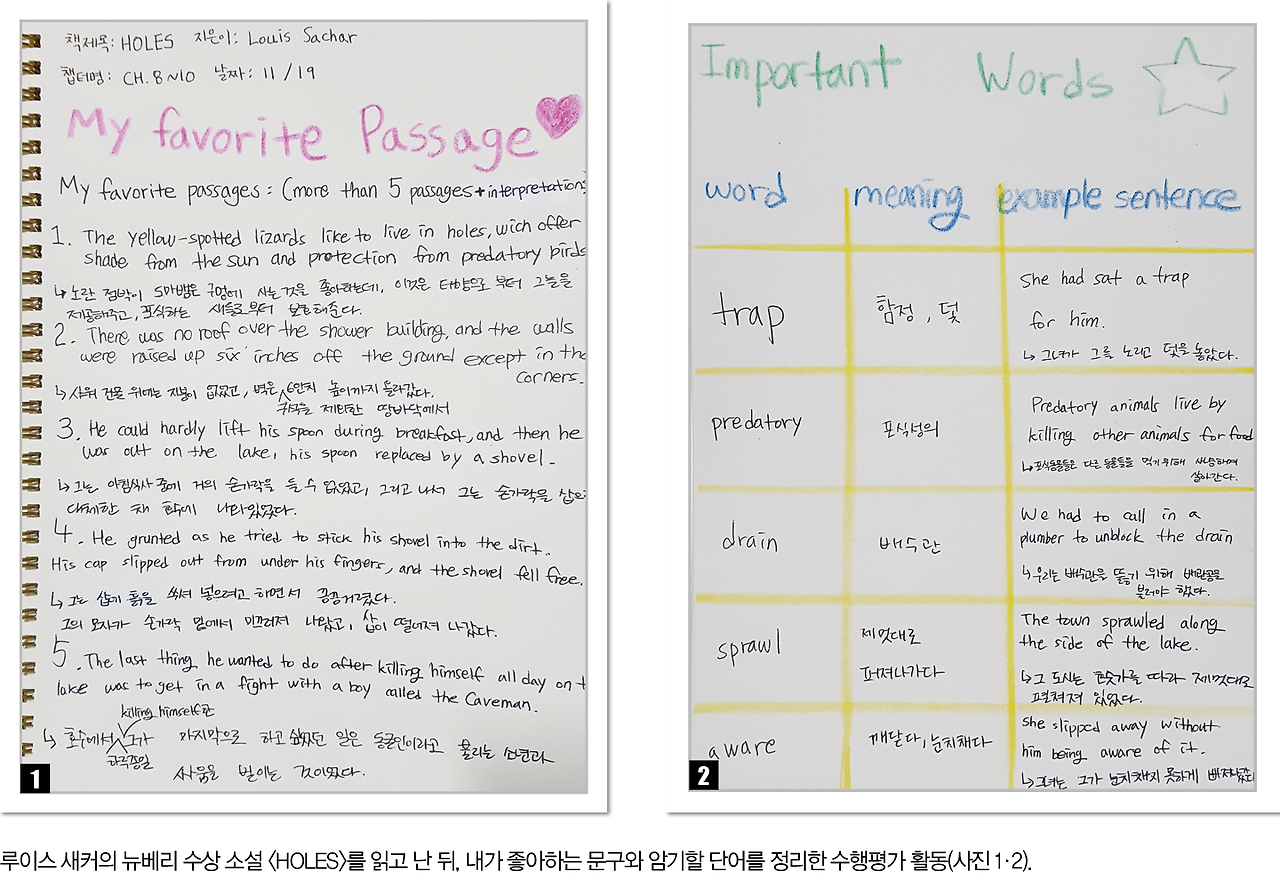 책제목: HOLES 지은이: Louis Sachar
챕터명: CH. 8~10 날짜: 11/19
My favorite Passage
My favorite passages : (more than 5 passages + interpretation)
1. The yellow-spotted lizards like to live in holes, wich offer
shade from the sun and protection from predatory birds
↳ 노란 점박이 도마뱀은 구멍에 사는 것을 좋아하는데, 이것은 태양으로 부터 그늘을
제공해주고, 포식하는 새들로부터 보호해준다.
2. There was no roof over the shower building, and the walls
were raised up six inches off the ground except in the
corners.
↳ 샤워 건물 위에는 지붕이 없었고, 벽은 6인치 높이까지 올라갔다.
귀퉁을 제외한 땅바닥에서
3. He could hardly lift his spoon during breakfast, and then he
was out on the lake, his spoon replaced by a shovel.
↳ 그는 아침식사 중에 거의 숟가락을 들 수 없었고, 그리고 나서 그는 숟가락을 삽으
대체한 채 호수에 나타있었다.
4. He grunted as he tried to stick his shovel into the dirt.
His cap slipped out from under his fingers, and the shovel fell free.
↳ 그는 삽기 흙을 쑤셔 넣으려고 하면서 끙끙거렸다.
그의 모자가 손가락 밑에서 미끄러져 나왔고, 삽이 떨어져 나갔다.
5. The last thing he wanted to do after killing himself all day on t
lake was to get in a fight with a boy called the Caveman.
killing himself한
↳ 호수에서 그가 마지막으로 하고 싶었던 일은 동굴인이라고 불리는 소년과
하루종일
싸움을 벌이는 것이었다.
1
Important Words
word meaning example sentence
trap 함정, 덫
She had sat a trap
for him.
↳ 그녀가 그를 노리고 덫을 놓았다.
predatory 포식성의
Predatory animals live by
killing other animals for food
↳ 포식동물들은 다른 동물들을 먹기 위해 사냥하며
살아간다.
drain 배수관
We had to call in a
plumber to unblock the drain
↳ 우리는 배수관을 뚫기 위해 배관공을
불러야 했다.
sprawl 제멋대로
퍼져나가다
The town sprawled along
the side of the lake.
↳ 그 도시는 호숫가를 따라 제멋대로
펼쳐져 있었다.
aware 깨닫다, 눈치채다
she slipped away without
him being aware of it.
↳ 그녀는 그가 눈치채지 못하게 빠져나갔다
2
루이스 새커의 뉴베리 수상 소설 〈HOLES〉를 읽고 난 뒤, 내가 좋아하는 문구와 암기할 단어를 정리한 수행평가 활동(사진 1·2).